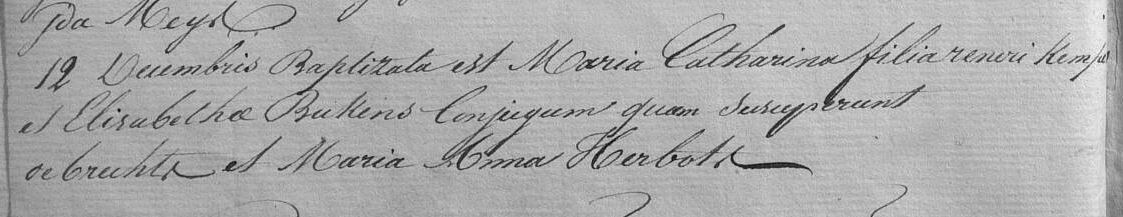 Ida Meys
12 Decembris Baptizata est Maria Catharina filia reneri Kemps
et Elisabethæ Bukens Conjugum quam susceperunt
oebrechts et Maria Anna Herbots